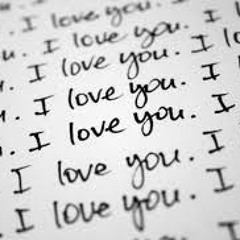 I love you.
I love you. I
. I love you. I
. I love you. I lo
. I love you. I
. I love you. I
I love you. I
. I love you. I